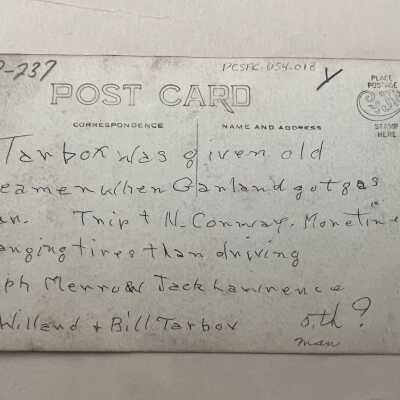 P-237
PCSPK-USA-018 Y
POST CARD
PLACE POSTAGE STAMP HERE
CORRESPONDENCE NAME AND ADDRESS
Tarbox was given old
eamer when Garland got gas
an. Trip t N. Conway. More time
anging tires than driving
ph Merrow Jack Lawrence
Willand + Bill Tarbox 5th?
man